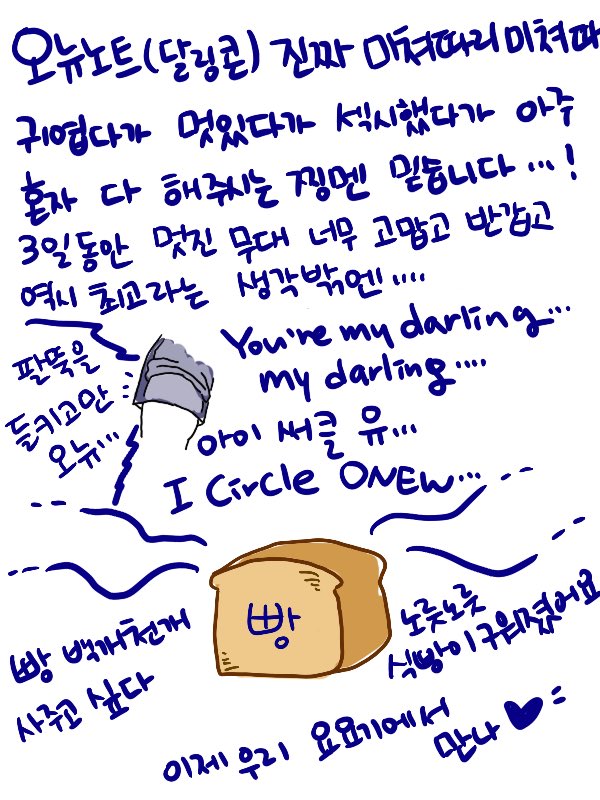 오뉴노트(달링콘) 진짜 미쳐따리미쳐따
귀엽다가 멋있다가 섹시했다가 아주
혼자 다 해주시는 찡멘 믿습니다...!
3일동안 멋진 무대 너무 고맙고 반갑고
역시 최고라는 생각밖엔....
You're my darling...
my darling....
팔뚝을
들키고만
오뉴...
아이 써클 유...
I Circle ONEW...
빵
빵 백개천개
사주고 싶다
노릇노릇
식빵이 구워졌어요
이제 우리 요요기에서
만나♥